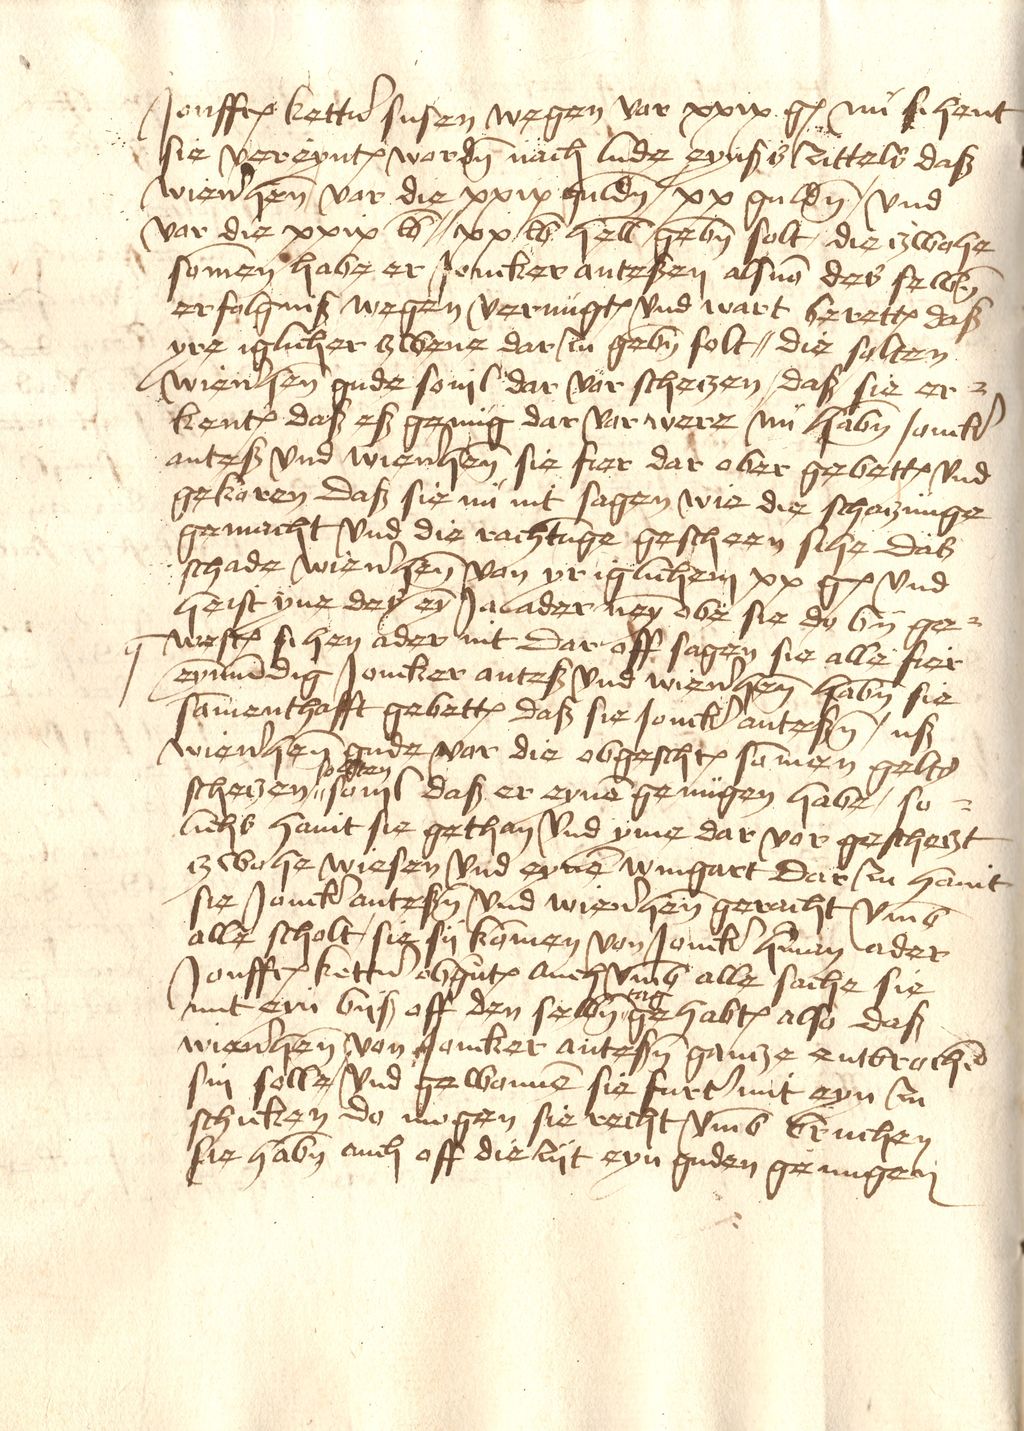 Jonffr(auwe) kettr(in) susen wegen vor xxix g(ulden) nu sihent
sie vereynt(en) word(e)n nach lude eynß zittels daß
wienhen vor die xxix guld(e)n / xx guld(e)n / und
vor die xxix lb // xx lb hell(er) geb(e)n solt / die zwohe
somen habe er Joncker anteßen also des selb(e)n
erfolgniß wegen vernugt und wart berett daß
yre iglicher zwene dar zu geb(e)n solt // die solten
wienhen gude souil dar vor schetzen / daß sie er=
kent daß eß genug dar vor were nu hab(e)n Jonck(er)
anteß und wienhen sie fier dar ober gebett und
gekoren daß sie nu nit sagen wie die schatzunge
gemacht und die rachtunge gescheen sihe das
schade wienhen von yr iglichem xx g(ulden) und
heist yne des ey Ja ader ney obe sie do by ge=
west sihen ader nit Dar off sagen sie alle fier
eynmudig Joncker anteß und wienhen hab(e)n sie
samenthafft gebett daß sie Jonck(er) anteßn / uß
wienhen gude vor die obgescht somen geltz
schetzen solten // souil daß er eyne(n) genugen habe / so=
lichs hanit sie gethan und yme dar vor geschetzt
zwohe wiesen und eyne(n) wingart Dar zu hanit
sie Jonck(er) anteßn und wienhen geracht umb
alle scholt / sie sy komen von Jonck(er) h(er)man ader
Jonffr(auwe) kettr(in) obgn(an)t auch umb alle sache sie
mit eyn byß off den selb(e)n tag gehabt also daß
wienhen von Joncker anteßn gantze entbrochen
sin solle / und gewonne(n) sie furt(er) mit eyn zu
schicken do mogen sie recht umb bruchen
sie hab(e)n auch off die zijt eyn guden genugen